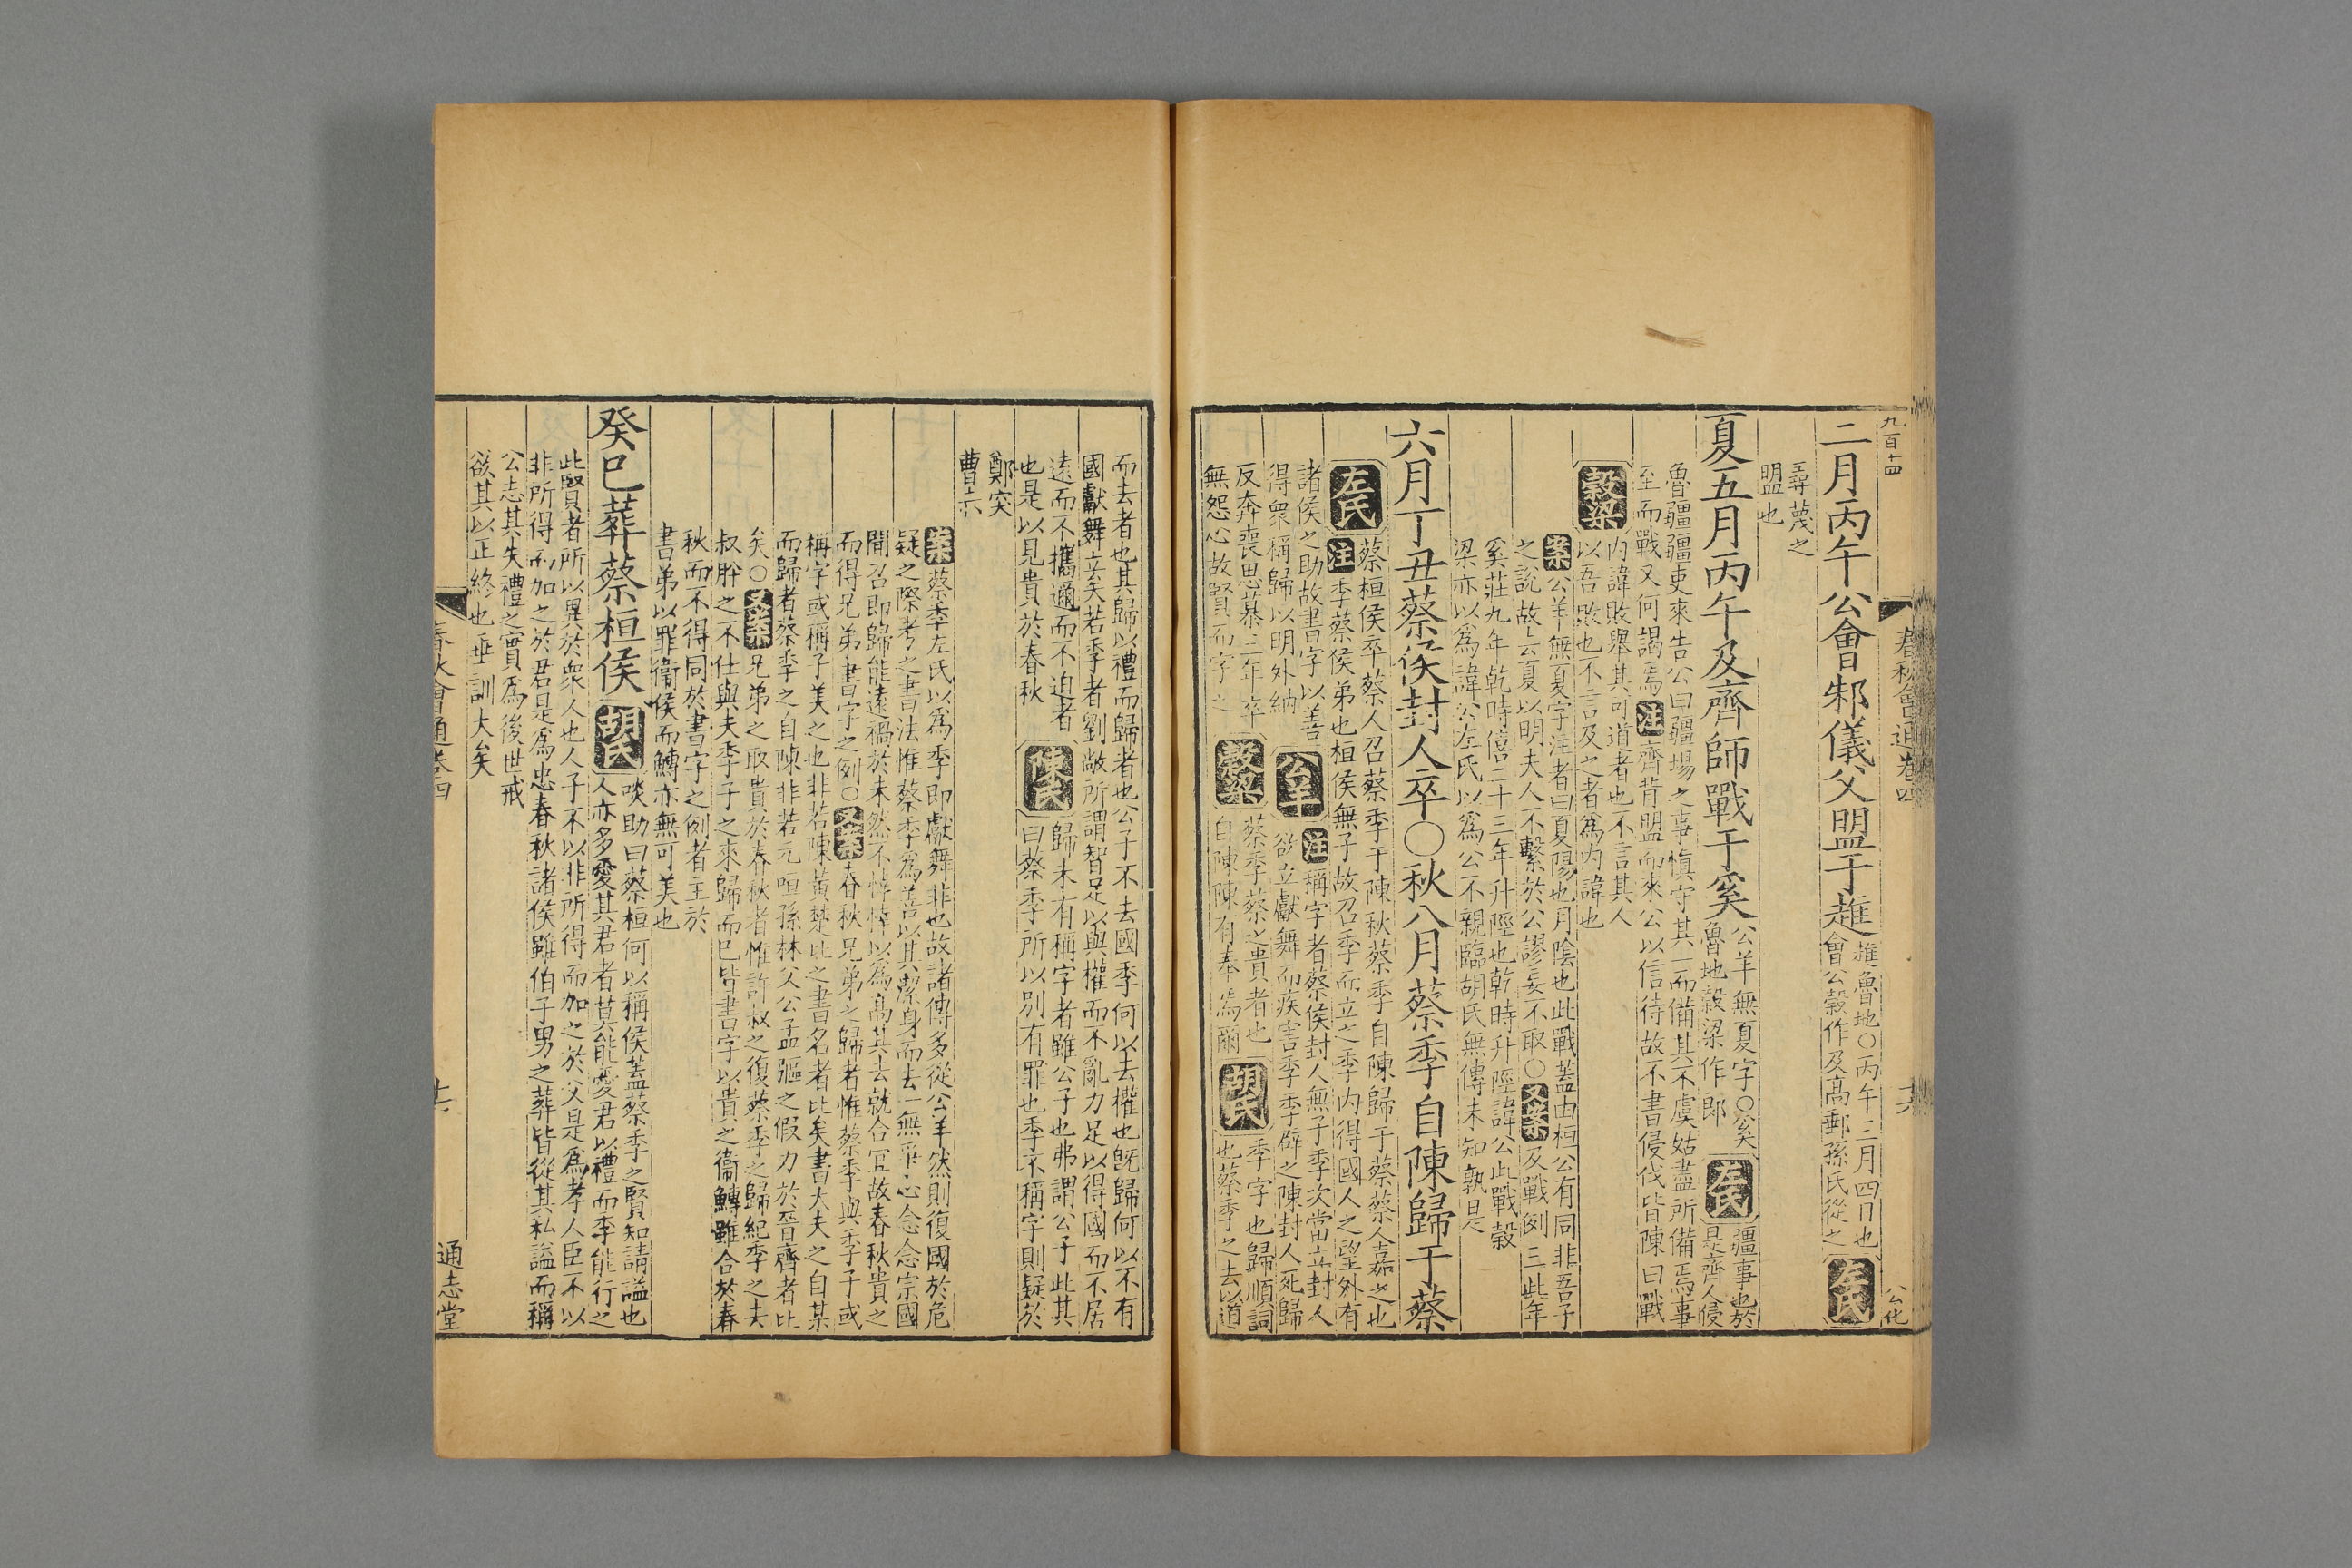 九百十四
春秋會通卷四
公化
二月丙午公會邾儀父盟于趡
趡魯地〇丙午三月四日也
會公穀作及高郵孫氏從之
左氏
尋蔑之
盟也
夏五月丙午及齊師戰于奚
公羊無夏字〇奚
魯地穀梁作郎
左氏
疆事也於
是齊人侵
魯疆疆吏來告公曰疆場之事愼守其一而備其不虞姑盡所備焉事
至而戰又何謁焉注齊背盟而來公以信待故不書侵伐皆陳曰戰
穀梁
内諱敗舉其可道者也不言其人
以吾敗也不言及之者爲内諱也
案公羊無夏字注者曰夏陽也月陰也此戰蓋由桓公有同非吾子
之說故去夏以明夫人不繫於公謬妄不取〇又案及戰例三此年
奚莊九年乾時僖二十三年升陘也乾時升陘諱公此戰穀
梁亦以爲諱公左氏以爲公不親臨胡氏無傳未知孰是
六月丁丑蔡侯封人卒〇秋八月蔡季自陳歸于蔡
左氏
蔡桓侯卒蔡人召蔡季于陳秋蔡季自陳歸于蔡蔡人嘉之也
注季蔡侯弟也桓侯無子故召季而立之季内得國人之望外有
諸侯之助故書字以善
得衆稱歸以明外納
公羊
注稱字者蔡侯封人無子季次當立封人
欲立獻舞而疾害季季辟之陳封人死歸
反奔喪思慕三年卒
無怨心故賢而字之
穀梁
蔡季蔡之貴者也
自陳陳有奉焉爾
胡氏
季字也歸順詞
也蔡季之去以道
而去者也其歸以禮而歸者也公子不去國季何以去權也旣歸何以不有
國獻舞立矣若季者劉敞所謂智足以與權而不亂力足以得國而不居
遠而不攜邇而不迫者
也是以見貴於春秋
陳氏
歸未有稱字者雖公子也弗謂公子此其
曰蔡季所以別有罪也季不稱字則疑於
鄭突
曹赤
案蔡季左氏以爲季即獻舞非也故諸傳多從公羊然則復國於危
疑之際考之書法惟蔡季爲善以其潔身而去一無爭心念念宗國
聞召即歸能遠禍於未然不悻悻以爲高其去就合宜故春秋貴之
而得兄弟書字之例〇又案春秋兄弟之歸者惟蔡季與季子或
稱字或稱子美之也非若陳黃楚比之書名者比矣書大夫之自某
而歸者蔡季之自陳非若元咺孫林父公孟彄之假力於晉齊者比
矣〇又案兄弟之取貴於春秋者惟許叔之復蔡季之歸紀季之去
叔肸之不仕與夫季子之來歸而已皆書字以貴之衞鱄雖合於春
秋而不得同於書字之例者主於
書弟以罪衞侯而鱄亦無可美也
癸巳葬蔡桓侯
胡氏
啖助曰蔡桓何以稱侯蓋蔡季之賢知請謚也
人亦多愛其君者莫能愛君以禮而季能行之
此賢者所以異於衆人也人子不以非所得而加之於父是爲孝人臣不以
非所得而加之於君是爲忠春秋諸侯雖伯子男之葬皆從其私謚而稱
公志其失禮之實爲後世戒
欲其以正終也垂訓大矣
春秋會通卷四
通志堂